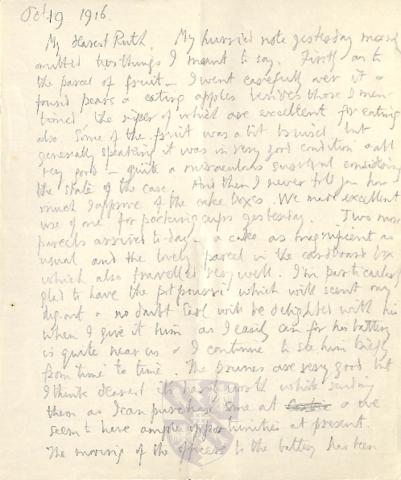 Oct 19 1916.
My dearest Ruth. My hurried note yesterday
omitted two things I meant to say. Firstly as to
the parcel of fruit – I went carefully over it &
found pears & eating apples besides those I men-
tioned the riper of which are excellent for eating
also. Some of the fruit was a bit bruised but
generally speaking it was in very good condition & all
very good – quite a miraculous survival considering
the state of the case. And then I never told you how
much I approve of the cake boxes. We made excellent
use of one for packing cups yesterday. Two more
parcels arrived to-day – a cake as magnificent as
usual and the lovely parcel in the cardboard box
which also travelled very well. I'm particularly
glad to have the pot pourri which will scent my
dug-out & no doubt will be delighted with his
when I give it him as I easily can for his battery
is quite near us & I continue to see him briefly
from time to time. The prunes are very good but
I think dearest it's hardly worth while sending
them as I can purchase some at & we
seem to have ample opportunities at present.
The moving of the officers to the battery has been